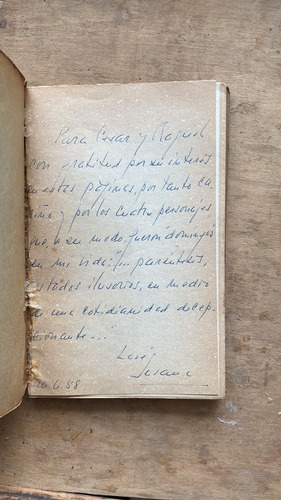 Para Cesar y Raquel
con gratitud por su interés
en estas páginas, por tanto ca-
riño y por los cuatro personajes
que, a su modo, fueron "domingos
en mi vida:"... parentesis,
estados ilusorios, en medio
de una cotidianidad decep-
cionante...
6.88